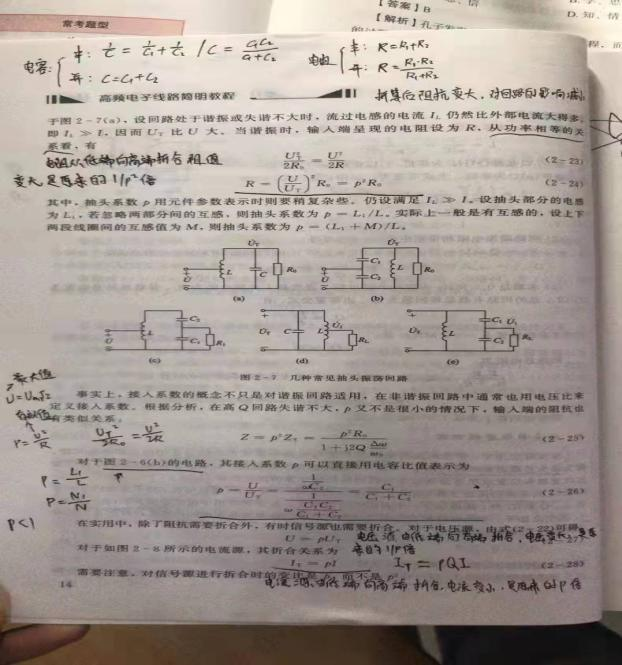 常考题型
【答案】B
【解析】孔子
D. 知、情
电容：
串：1/C = 1/C₁ + 1/C₂ / C = C₁C₂/C₁+C₂
并：C=C₁+C₂
串：R=R₁+R₂
并：R=R₁·R₂/R₁+R₂
高频电子线路简明教程
折算后阻抗变大，对回路的影响减小
于图2-7(a)，设回路处于谐振或失谐不大时，流过电感的电流 I_L 仍然比外部电流大得多，
即 I_L ≫ I，因而 U_T 比 U 大。当谐振时，输入端呈现的电阻设为 R，从功率相等的关
系看，有
电阻从低端向高端折合阻值
变大是原来的1/p²倍
U_T²/2R₀ = U²/2R (2-23)
R = (U/U_T)² R₀ = p²R₀ (2-24)
其中，抽头系数 p 用元件参数表示时则要稍复杂些。仍设满足 I_L ≫ I。设抽头部分的电感
为 L₁，若忽略两部分间的互感，则抽头系数为 p = L₁/L。实际上一般是有互感的，设上下
两段线圈间的互感值为 M，则抽头系数为 p = (L₁ + M)/L。
U_T U L C R₀
(a)
U_T U C₁ C₂ L R₀
(b)
U L C₂ C₁ R₁
(c)
U_T C L U₁ R_L
(d)
U_T L C₂ C₁ U₁ R_L
(e)
图 2-7 几种常见抽头振荡回路
最大值
U=Um/√2
有效值
P=U²/R
事实上，接入系数的概念不只是对谐振回路适用，在非谐振回路中通常也用电压比来
定义接入系数。根据分析，在高 Q 回路失谐不大，p 又不是很小的情况下，输入端的阻抗也
有类似关系：
U_T²/2R₀ = U²/2R
Z = p²Z_T = p²R₀ / 1+j2Q Δω/ω₀ (2-25)
对于图 2-6(b)的电路，其接入系数 p 可以直接用电容比值表示为
P=L₁/L
P=N₁/N
P<1
p = U/U_T = 1/ωC₂ / 1/ω C₁C₂/C₁+C₂ = C₁/C₁+C₂ (2-26)
在实用中，除了阻抗需要折合外，有时信号源也需要折合。对于电压源，由式(2-22)可得
U = pU_T
电压源由低端向高端折合，电压变大，是原
来的1/P倍
对于如图 2-8 所示的电流源，其折合关系为
I_T = pI (2-28)
I_T = PQI
需要注意，对信号源进行折合时的变比是 p，而不是 p²。
电流源由低端向高端折合，电流变小，是原来的P倍
14